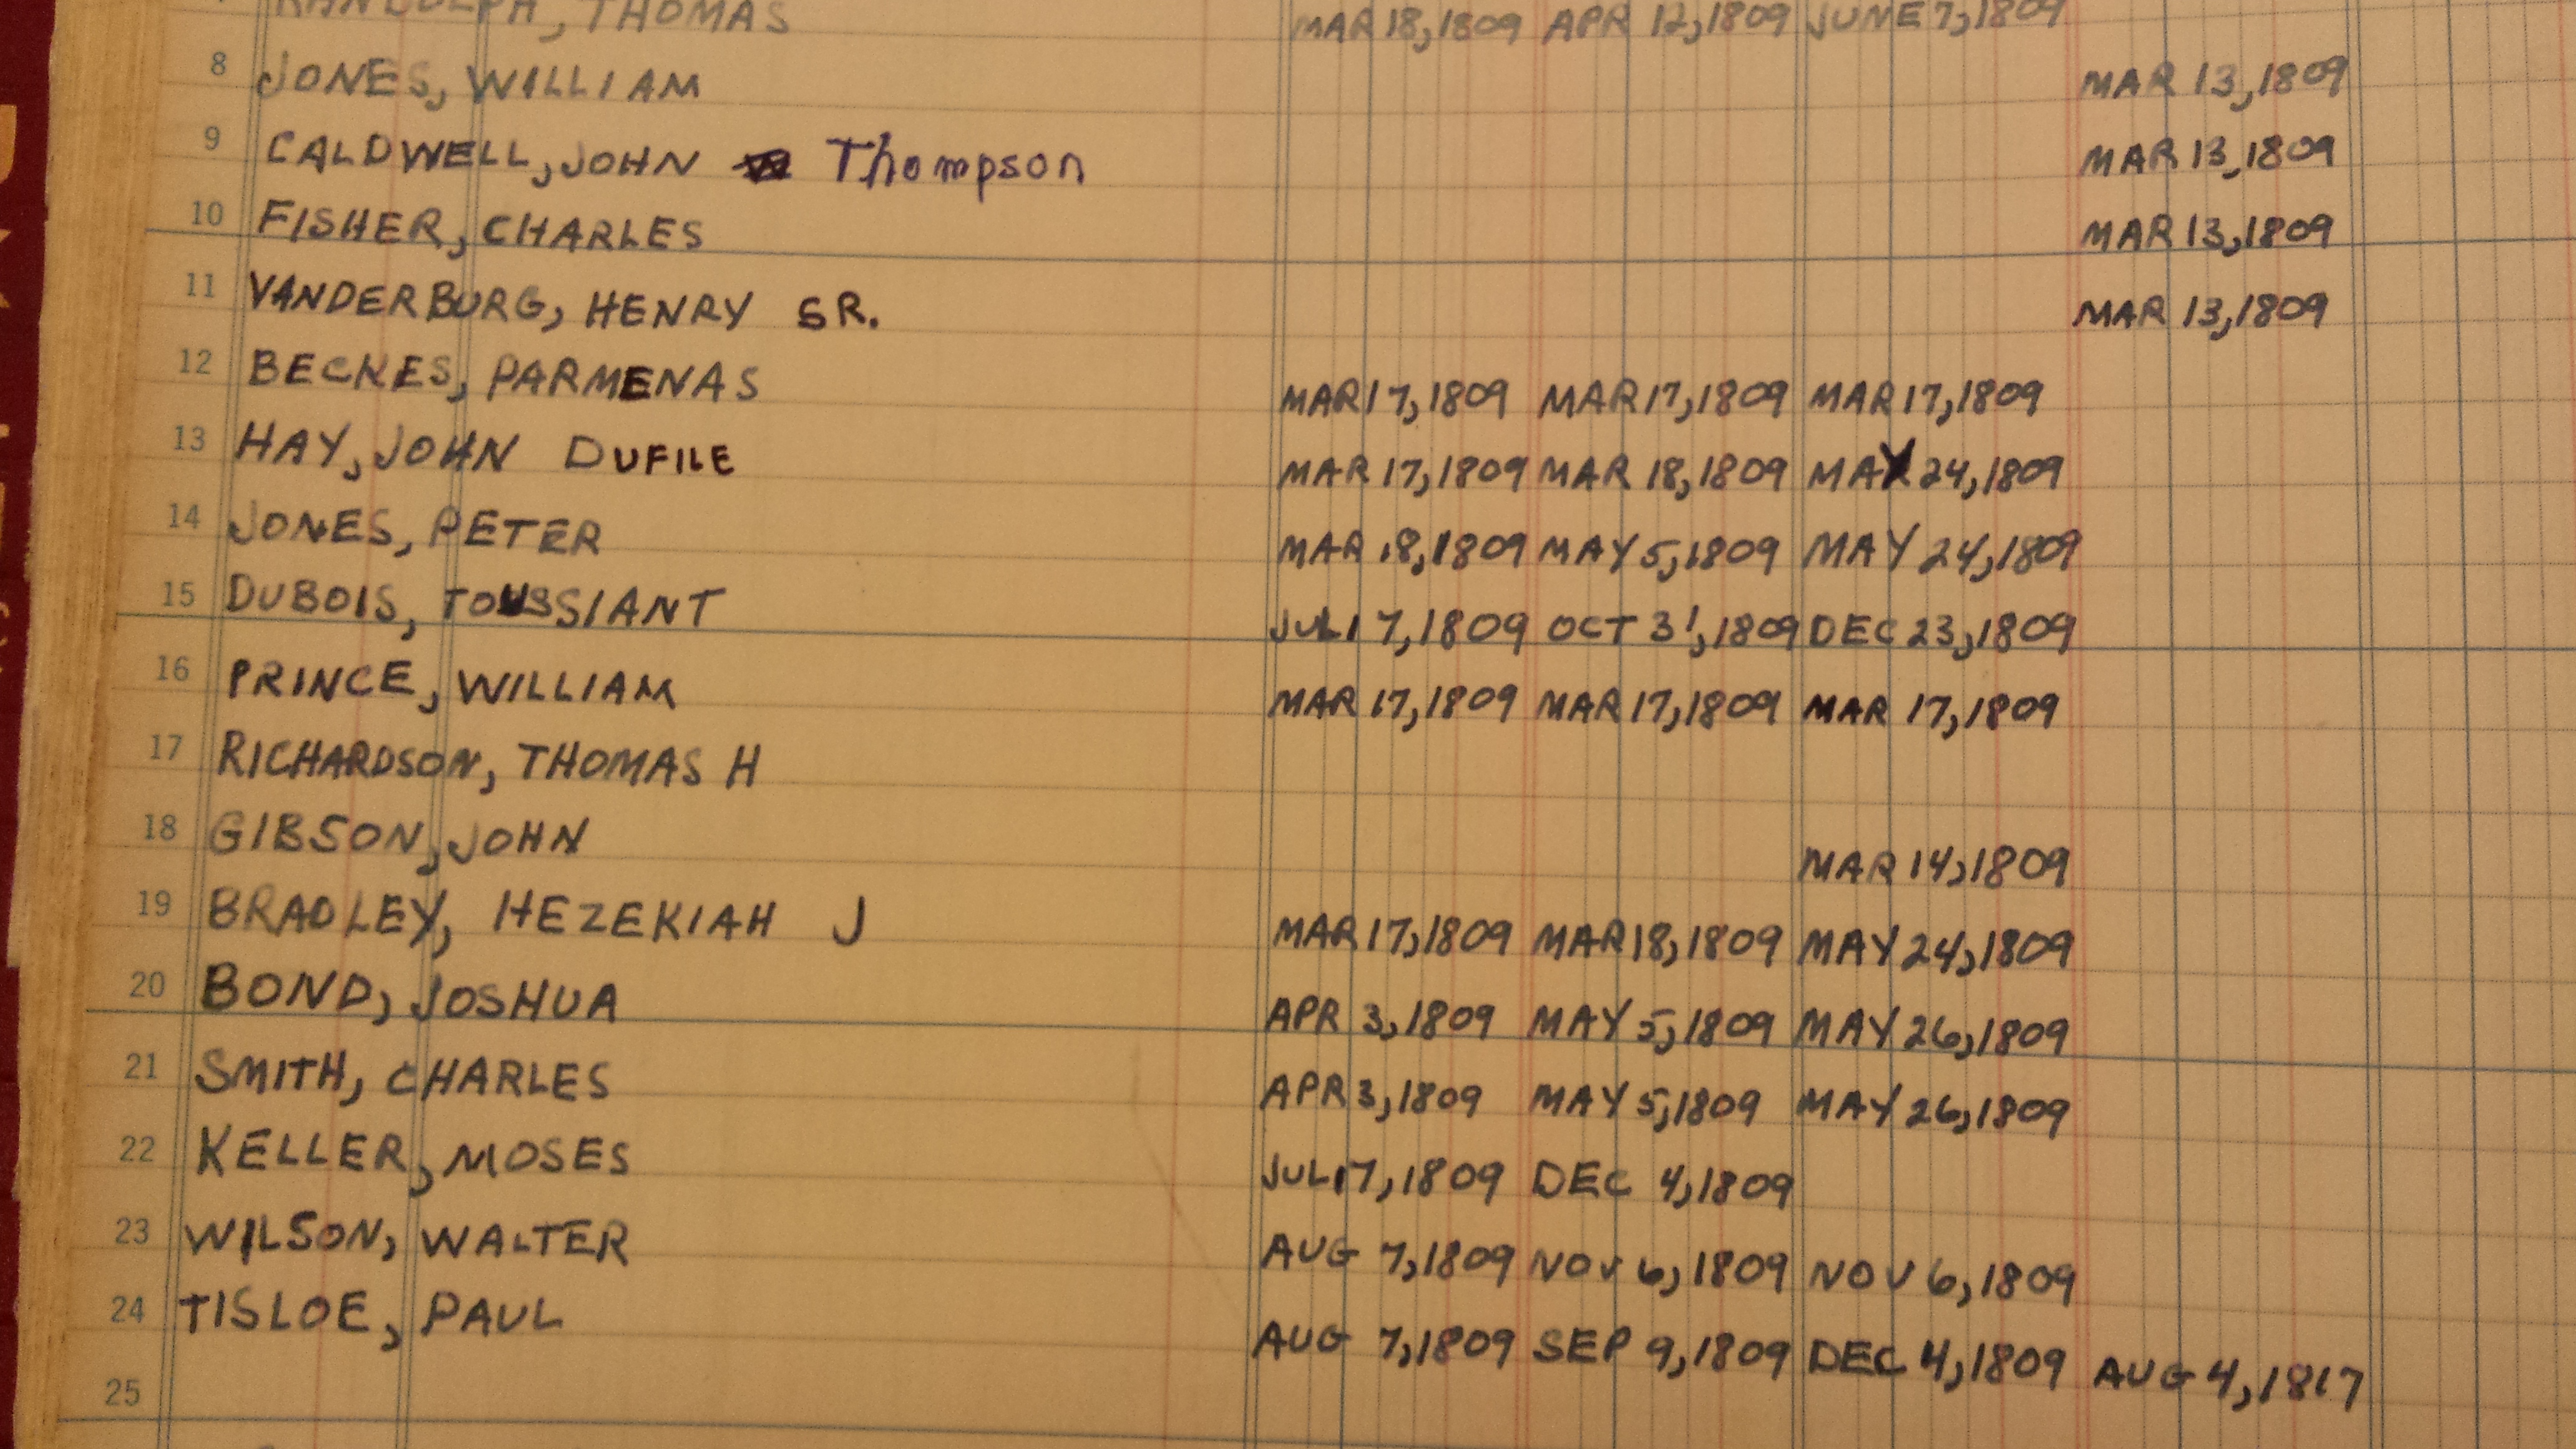 RANDOLPH, THOMAS MAR 18, 1809 APR 12, 1809 JUNE 7, 1809
8 JONES, WILLIAM MAR 13, 1809
9 CALDWELL, JOHN Thompson MAR 13, 1809
10 FISHER, CHARLES MAR 13, 1809
11 VANDERBURG, HENRY SR. MAR 13, 1809
12 BECKES, PARMENAS MAR 17, 1809 MAR 17, 1809 MAR 17, 1809
13 HAY, JOHN DUFILE MAR 17, 1809 MAR 18, 1809 MAY 24, 1809
14 JONES, PETER MAR 18, 1809 MAY 5, 1809 MAY 24, 1809
15 DUBOIS, TOUSSIANT JUL 17, 1809 OCT 31, 1809 DEC 23, 1809
16 PRINCE, WILLIAM MAR 17, 1809 MAR 17, 1809 MAR 17, 1809
17 RICHARDSON, THOMAS H
18 GIBSON, JOHN MAR 14, 1809
19 BRADLEY, HEZEKIAH J MAR 17, 1809 MAR 18, 1809 MAY 24, 1809
20 BOND, JOSHUA APR 3, 1809 MAY 5, 1809 MAY 26, 1809
21 SMITH, CHARLES APR 3, 1809 MAY 5, 1809 MAY 26, 1809
22 KELLER, MOSES JUL 17, 1809 DEC 4, 1809
23 WILSON, WALTER AUG 7, 1809 NOV 6, 1809 NOV 6, 1809
24 TISLOE, PAUL AUG 7, 1809 SEP 9, 1809 DEC 4, 1809 AUG 4, 1817
25